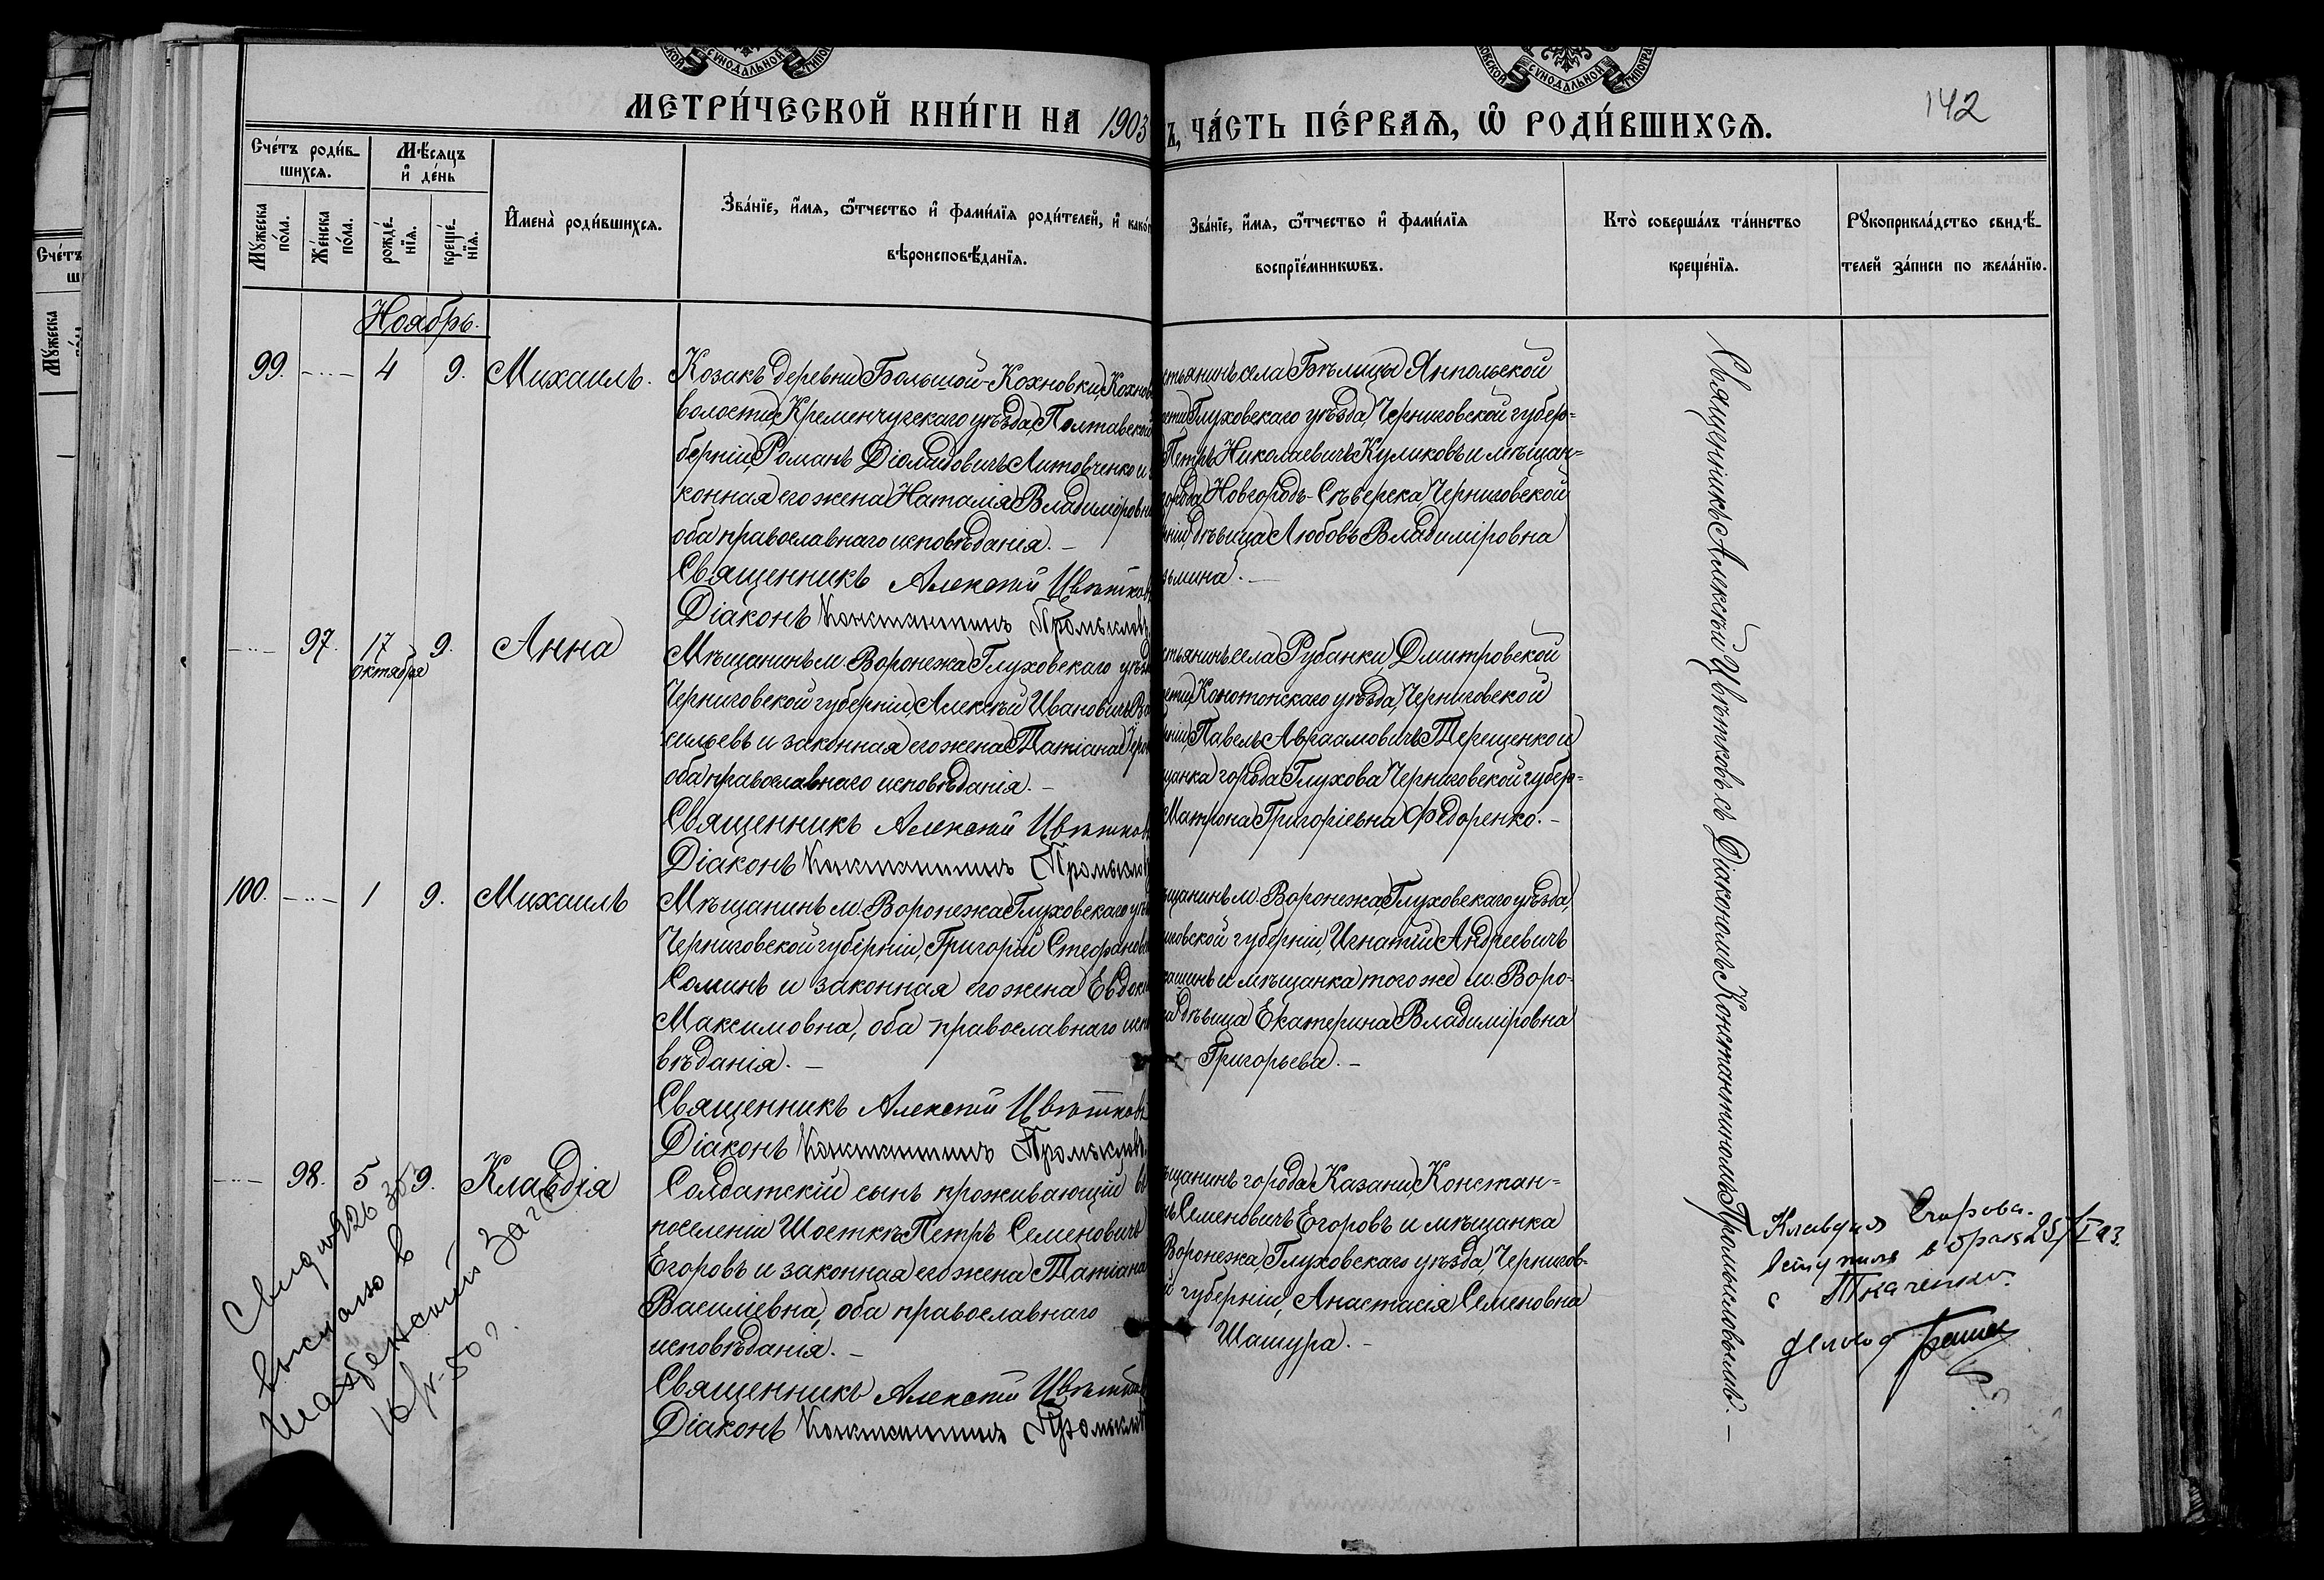 МЕТРИ́ЧЕСКОЙ КНИ́ГИ НА 1903
Ъ, ЧА́СТЬ ПЕ́РВАѦ, Ѽ РОДИ́ВШИХСѦ.
142
Сче́тъ роди́в-
шихсѧ.
Мѣ́сяцъ
и҆ де́нь
Мꙋ́жеска
по́ла.
Же́нска
по́ла.
рожде́-
нїѧ.
креще́-
нїѧ.
И҆мена̀ роди́вшихсѧ.
Зва́нїе, и҆́мѧ, ѻ҆́тчество и҆ фами́лїѧ роди́телей, и҆ како́г
вѣроисповѣ́данїѧ.
Зва́нїе, и҆́мѧ, ѻ҆́тчество и҆ фами́лїѧ
воспрїе́мникѡвъ.
Кто̀ соверша́лъ та́инство
креще́нїѧ.
Рꙋкоприкла́дство свидѣ́-
телей за́писи по жела́нїю.
Ноябрь.
99. 4 9. Михаилъ.
Козакъ деревни Большой-Кохновки, Кохнов
волости, Кременчугскаго уѣзда, Полтавской
берніи, Романъ Діомидовичъ Литовченко и
конная его жена Наталія Владиміровна
оба православнаго исповѣданія. –
Священникъ Алексій Цвѣтковъ
Діаконъ Константинъ Промысловъ
стьянинъ села Бѣлицы Янпольской
ости, Глуховскаго уѣзда, Черниговской губер=
Петръ Николаевичъ Куликовъ и мѣщан=
города Новгородъ-Сѣверска Черниговской
рніи, дѣвица Любовь Владиміровна
зьмина. –
97. 17 9. Анна
октября
Мѣщанинъ м. Воронежа Глуховскаго уѣзд
Черниговской губерніи, Алексѣй Ивановичъ Ва
сильевъ и законная его жена Татіана
оба православнаго исповѣданія. –
Священникъ Алексій Цвѣтковъ
Діаконъ Константинъ Промысловъ
стьянинъ села Рубанки, Дмитровской
ости, Конотопскаго уѣзда, Черниговской
рніи, Павелъ Авраамовичъ Терещенко и
щанка города Глухова Черниговской губер=
Матрона Григоріевна Федоренко. –
100. 1 9. Михаилъ
Мѣщанинъ м. Воронежа Глуховскаго уѣз
Черниговской губерніи, Григорій Стефанови
Соминъ и законная его жена Евдокі
Максимовна, оба православнаго испо
вѣданія. –
Священникъ Алексій Цвѣтковъ
Діаконъ Константинъ Промысловъ
щанинъ м. Воронежа, Глуховскаго уѣзда,
иговской губерніи, Игнатій Андреевичъ
кашинъ и мѣщанка того же м. Воро-
а дѣвица Екатерина Владиміровна
Григорьева. –
98. 5 9. Клавдія
Солдатскій сынъ проживающій въ
поселеніи Шосткѣ Петръ Семеновичъ
Егоровъ и законная его жена Татіана
Василіевна, оба православнаго
исповѣданія. –
Священникъ Алексій Цвѣтковъ
Діаконъ Константинъ Промысловъ
щанинъ города Казани, Констан=
ъ Семеновичъ Егоровъ и мѣщанка
Воронежа, Глуховскаго уѣзда, Чернигов-
й губерніи, Анастасія Семеновна
Шашура. –
Священникъ Алексѣй Цвѣтковъ съ Діакономъ Константиномъ Промысловымъ. –
выслано в
Загс
Клавдия Егорова
вступила в брак 25/I
с Ткаченко.
Счетъ
Мꙋ́жеска